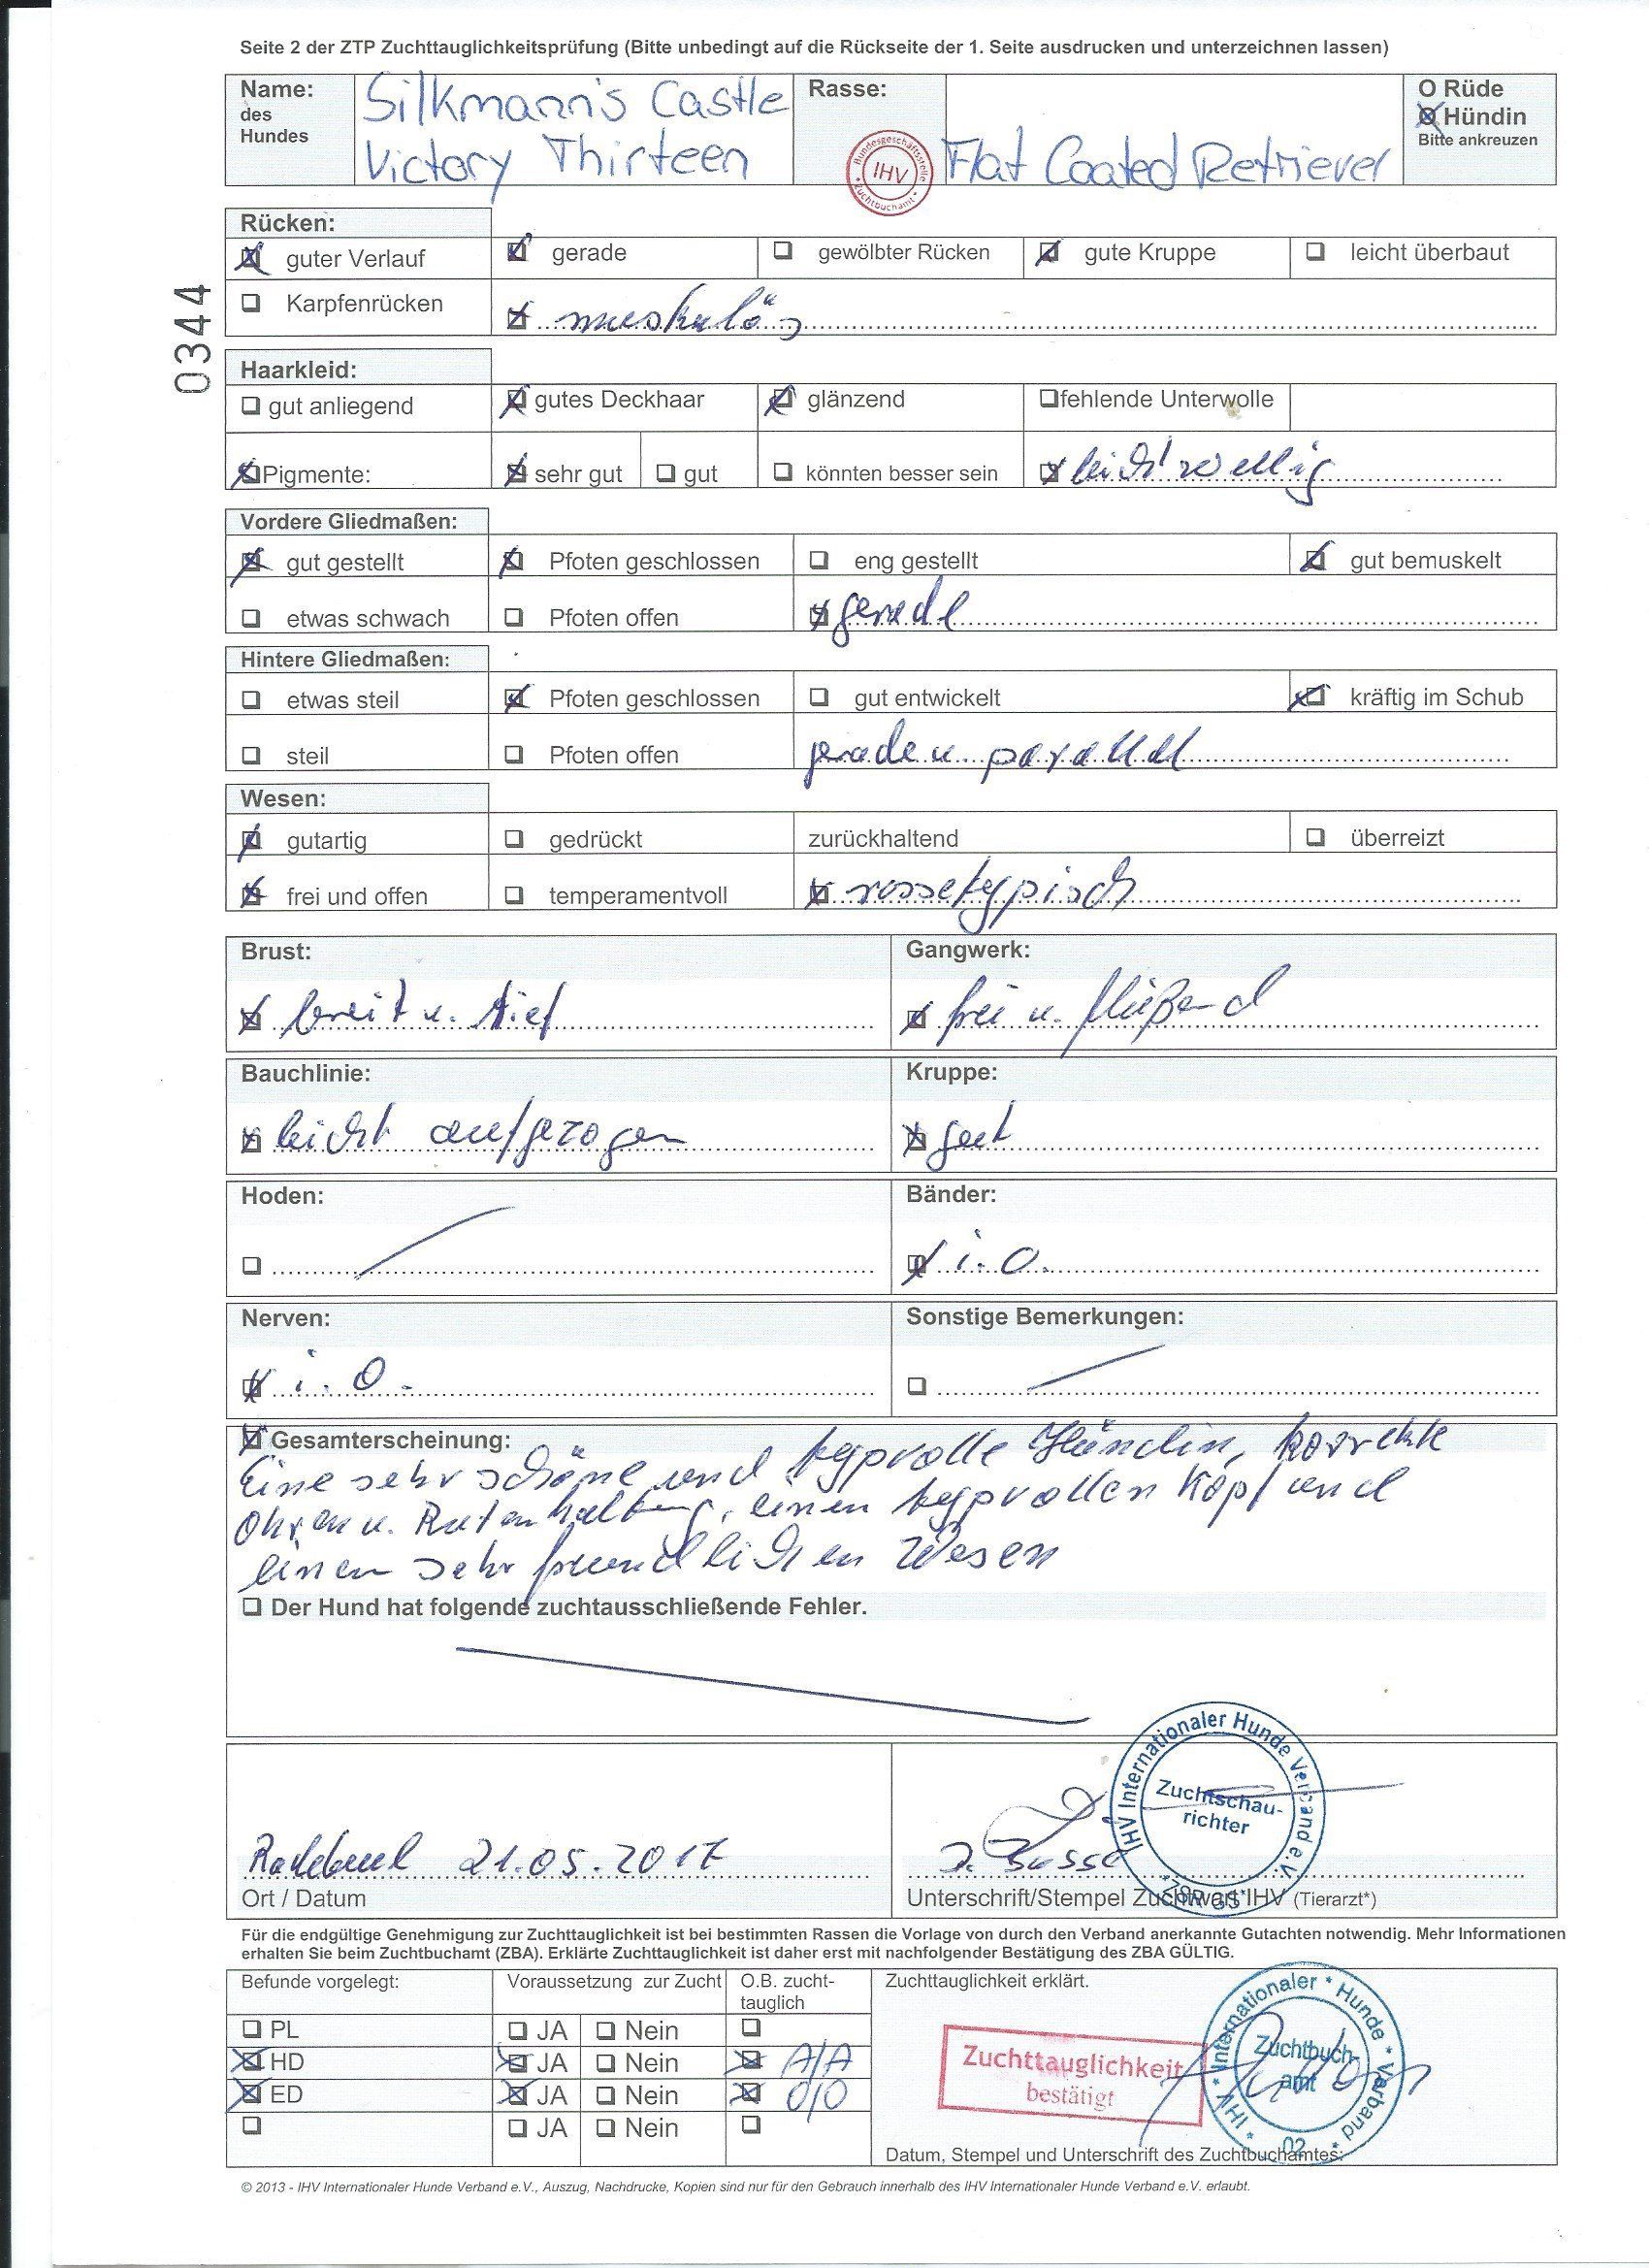 Seite 2 der ZTP Zuchttauglichkeitsprüfung (Bitte unbedingt auf die Rückseite der 1. Seite ausdrucken und unterzeichnen lassen)
Name: des Hundes Silkmann's Castle Rasse: O Rüde
Victory Thirteen Flat Coated Retriever O Hündin
Bitte ankreuzen
Bundesgeschäftsstelle IHV Zuchtbuchamt
0344
Rücken:
guter Verlauf gerade gewölbter Rücken gute Kruppe leicht überbaut
Karpfenrücken muskulös
Haarkleid:
gut anliegend gutes Deckhaar glänzend fehlende Unterwolle
Pigmente: sehr gut gut könnten besser sein leicht wellig
Vordere Gliedmaßen:
gut gestellt Pfoten geschlossen eng gestellt gut bemuskelt
etwas schwach Pfoten offen gerade
Hintere Gliedmaßen:
etwas steil Pfoten geschlossen gut entwickelt kräftig im Schub
steil Pfoten offen gerade u. parallel
Wesen:
gutartig gedrückt zurückhaltend überreizt
frei und offen temperamentvoll rassetypisch
Brust: Gangwerk:
breit u. tief frei u. fließend
Bauchlinie: Kruppe:
leicht aufgezogen gut
Hoden: Bänder:
i.O.
Nerven: Sonstige Bemerkungen:
i.O.
Gesamterscheinung:
Eine sehr schöne und typvolle Hündin, korrekte
Ohren u. Rutenhaltung, einen typvollen Kopf und
einen sehr freundlichen Wesen
Der Hund hat folgende zuchtausschließende Fehler.
IHV Internationaler Hunde Verband e.V.
Zuchtschau-
richter
Radebeul 21.05.2017
Ort / Datum Unterschrift/Stempel Zuchtwart IHV (Tierarzt*)
Für die endgültige Genehmigung zur Zuchttauglichkeit ist bei bestimmten Rassen die Vorlage von durch den Verband anerkannte Gutachten notwendig. Mehr Informationen
erhalten Sie beim Zuchtbuchamt (ZBA). Erklärte Zuchttauglichkeit ist daher erst mit nachfolgender Bestätigung des ZBA GÜLTIG.
Befunde vorgelegt: Voraussetzung zur Zucht O.B. zucht- Zuchttauglichkeit erklärt.
tauglich
PL JA Nein
HD JA Nein A/A
ED JA Nein 0/0
JA Nein
Zuchttauglichkeit
bestätigt
* IHV * Internationaler * Hunde * Verband *
Zuchtbuch-
amt
02
Datum, Stempel und Unterschrift des Zuchtbuchamtes:
© 2013 - IHV Internationaler Hunde Verband e.V., Auszug, Nachdrucke, Kopien sind nur für den Gebrauch innerhalb des IHV Internationaler Hunde Verband e.V. erlaubt.